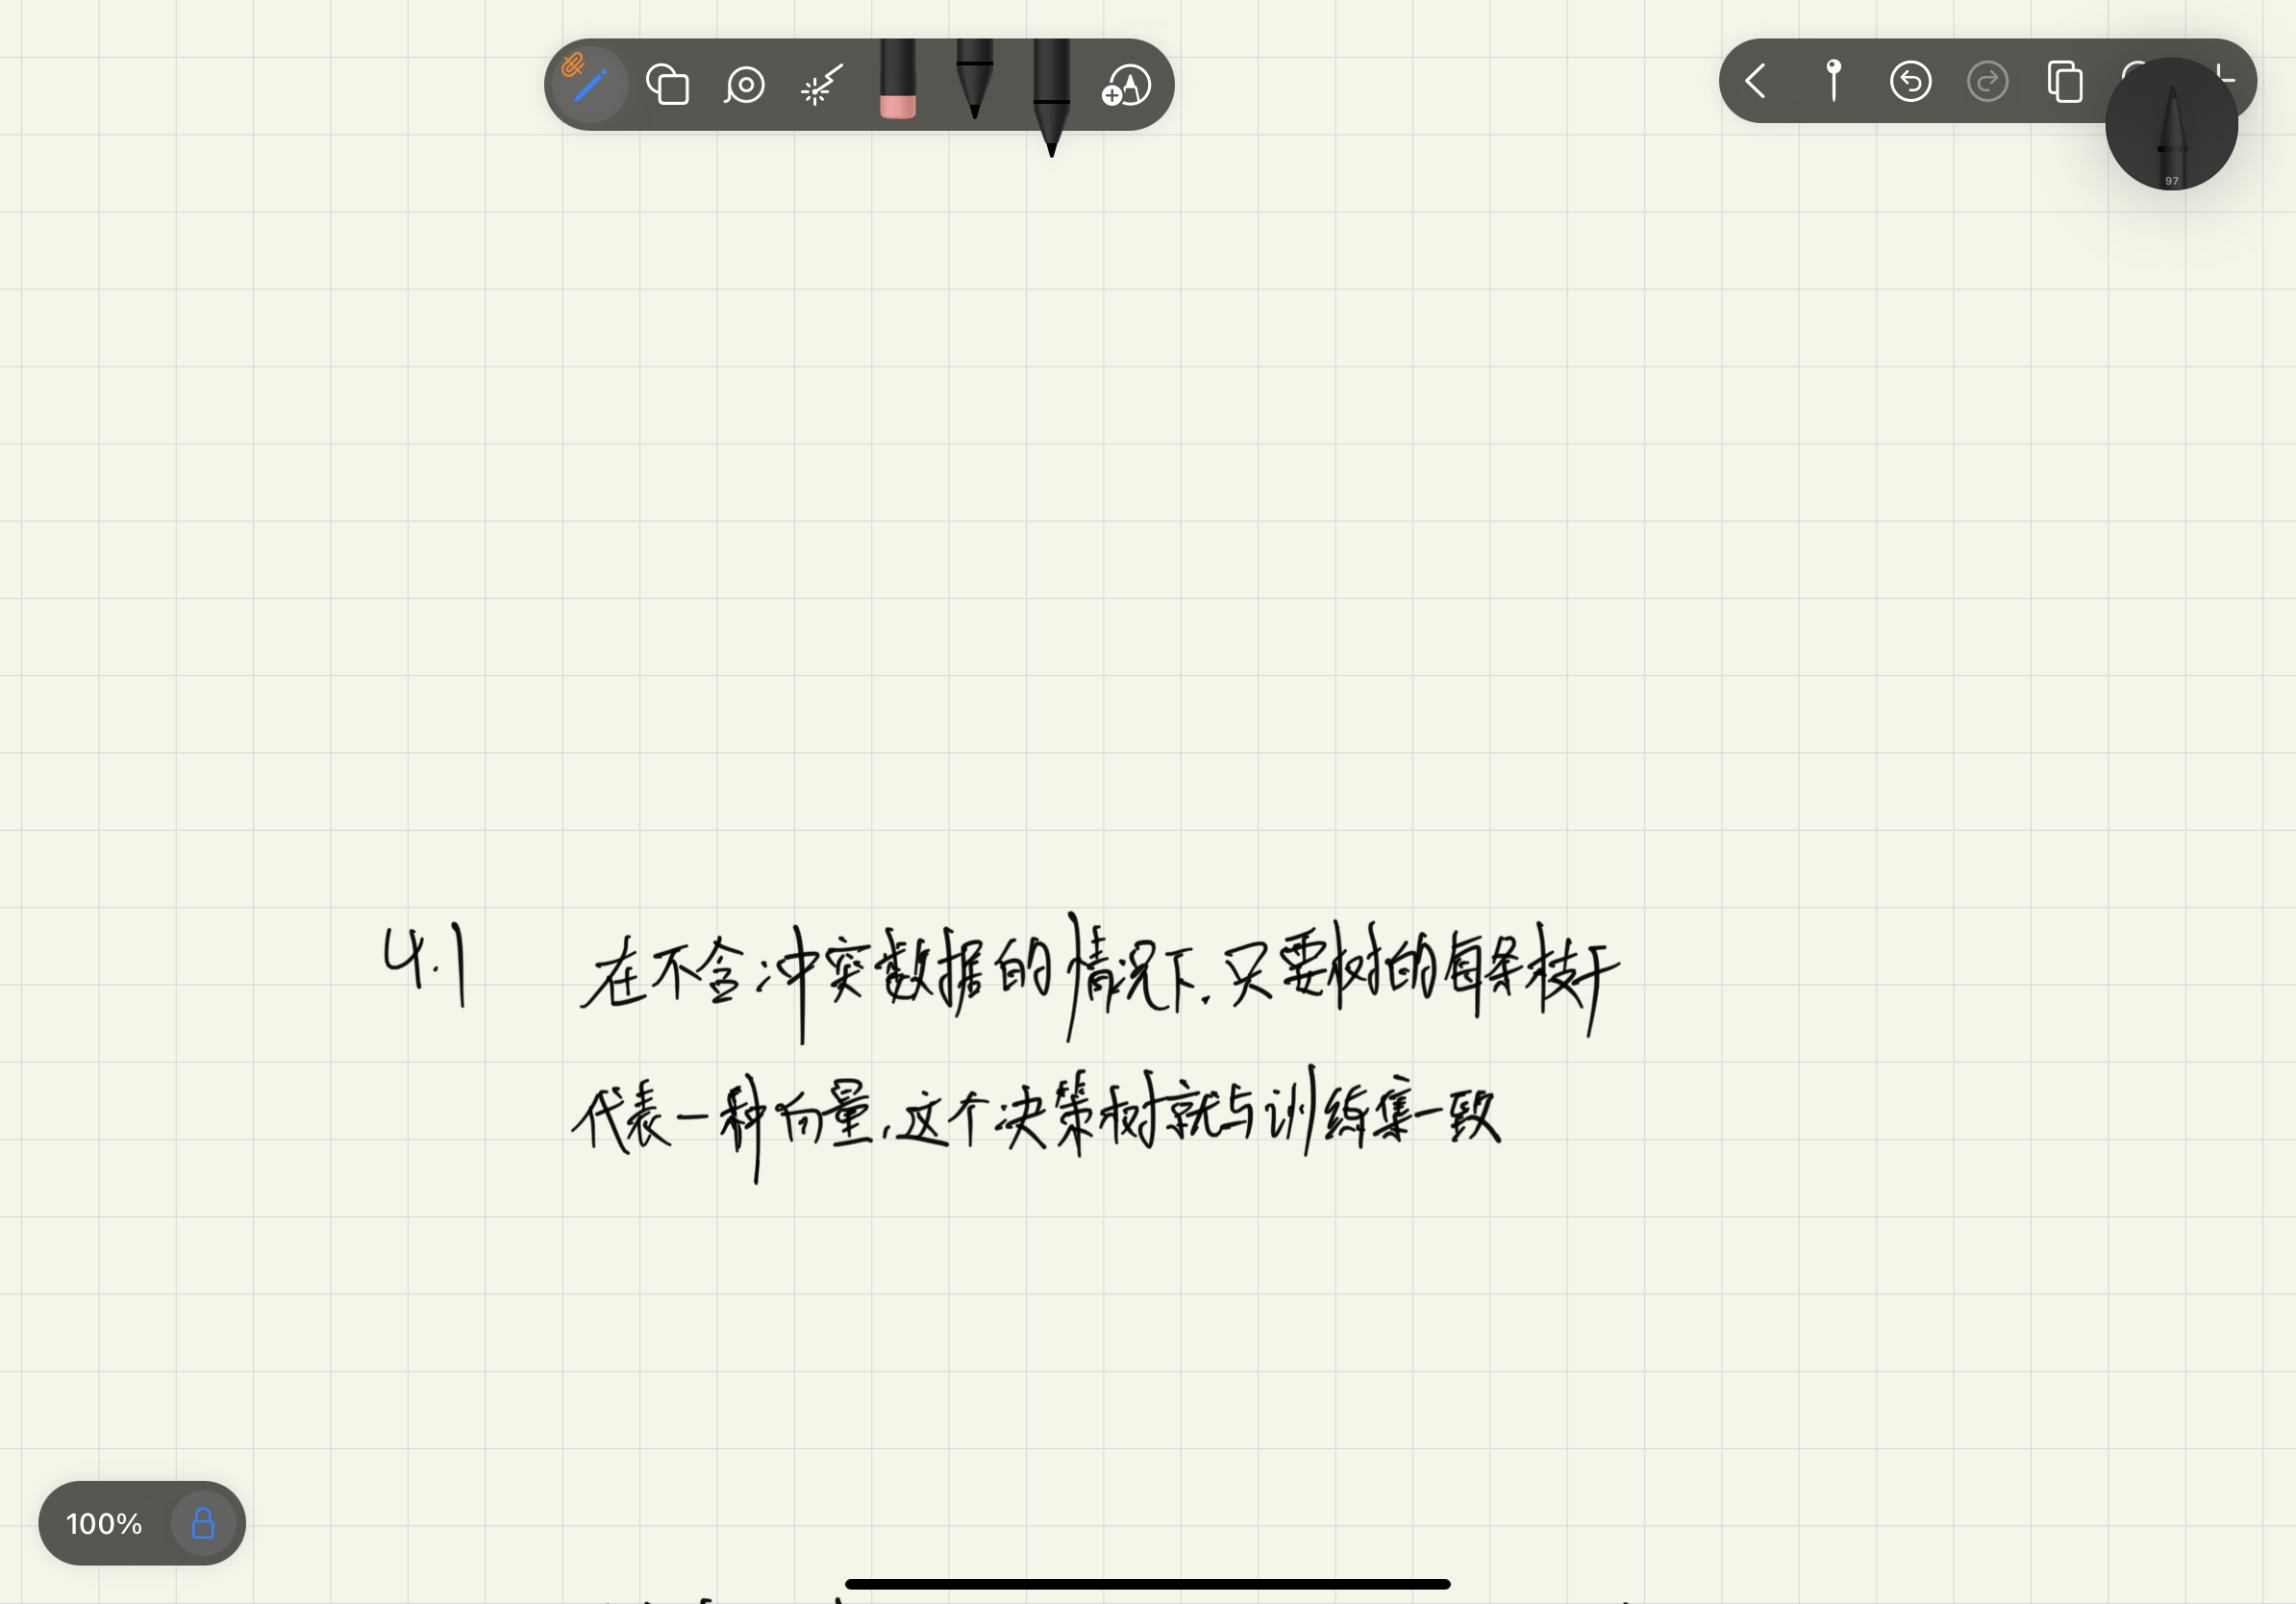 97
4.1 在不含冲突数据的情况下.只要树的每条枝干
代表一种向量.这个决策树就与训练集一致
100%